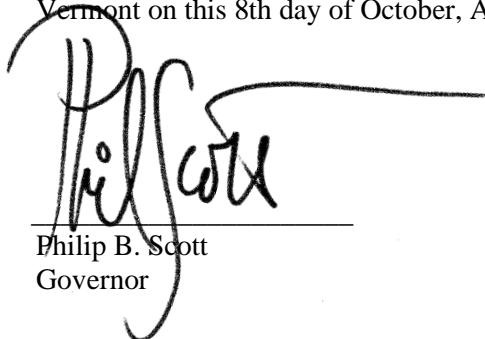 Vermont on this 8th day of October, A
Phil Scott
Philip B. Scott
Governor